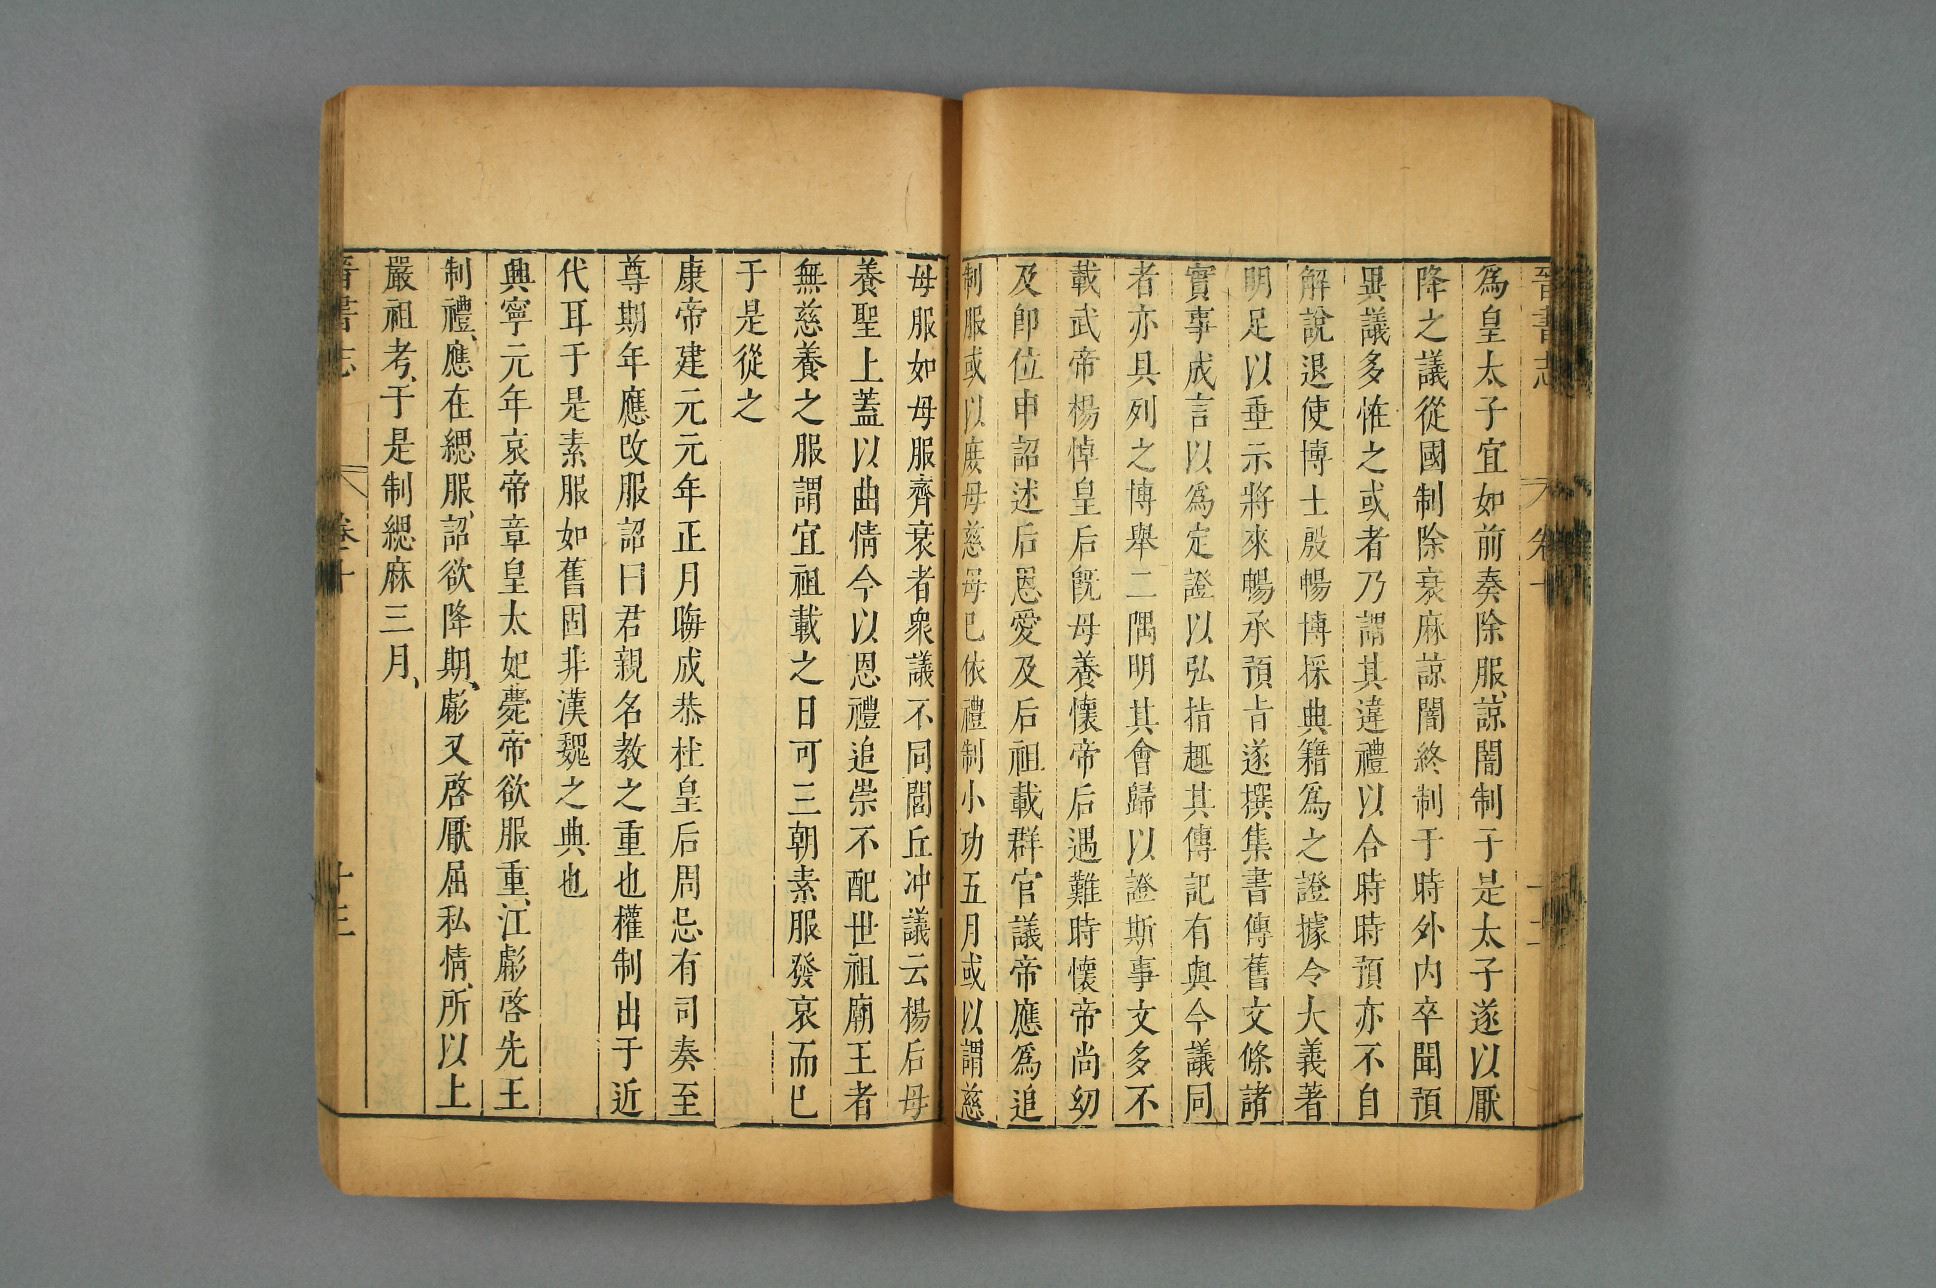 晉書志 卷十 十二
爲皇太子宜如前奏除服、諒闇制于是太子遂以厭
降之議從國制除衰麻諒闇終制于時外内卒聞預
異議多怪之或者乃謂其違禮以合時時預亦不自
解說退使博士殷暢博採典籍爲之證據令大義著
明足以垂示將來暢承預旨遂撰集書傳舊文條諸
實事成言以爲定證以弘指趣其傳記有與今議同
者亦具列之博舉二隅明其會歸以證斯事文多不
載武帝楊悼皇后既母養懷帝后遇難時懷帝尚幼
及即位中詔述后恩愛及后祖載群官議帝應爲追
制服或以庶母慈母己依禮制小功五月或以謂慈
母服如母服齊衰者衆議不同閭丘冲議云楊后母
養聖上蓋以曲情今以恩禮追崇不配世祖廟王者
無慈養之服謂宜祖載之日可三朝素服發哀而已
于是從之
康帝建元元年正月晦成恭杜皇后周忌有司奏至
尊期年應改服詔曰君親名教之重也權制出于近
代耳于是素服如舊固非漢魏之典也
興寧元年哀帝章皇太妃薨帝欲服重、江虨啓先王
制禮、應在緦服、詔欲降期、虨又啓厭屈私情、所以上
嚴祖考、于是制緦麻三月、
晉書志 卷十 十三